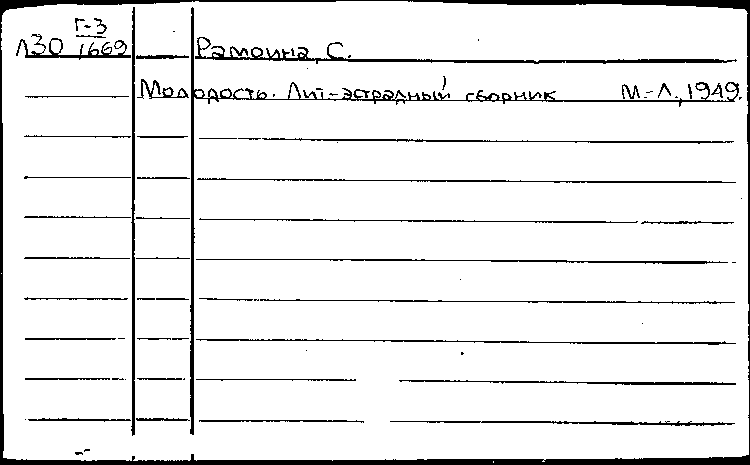 Г-3
Л30 1669 Рамоина, С.
Молодость. Лит-эстрадный сборник М.-Л., 1949.